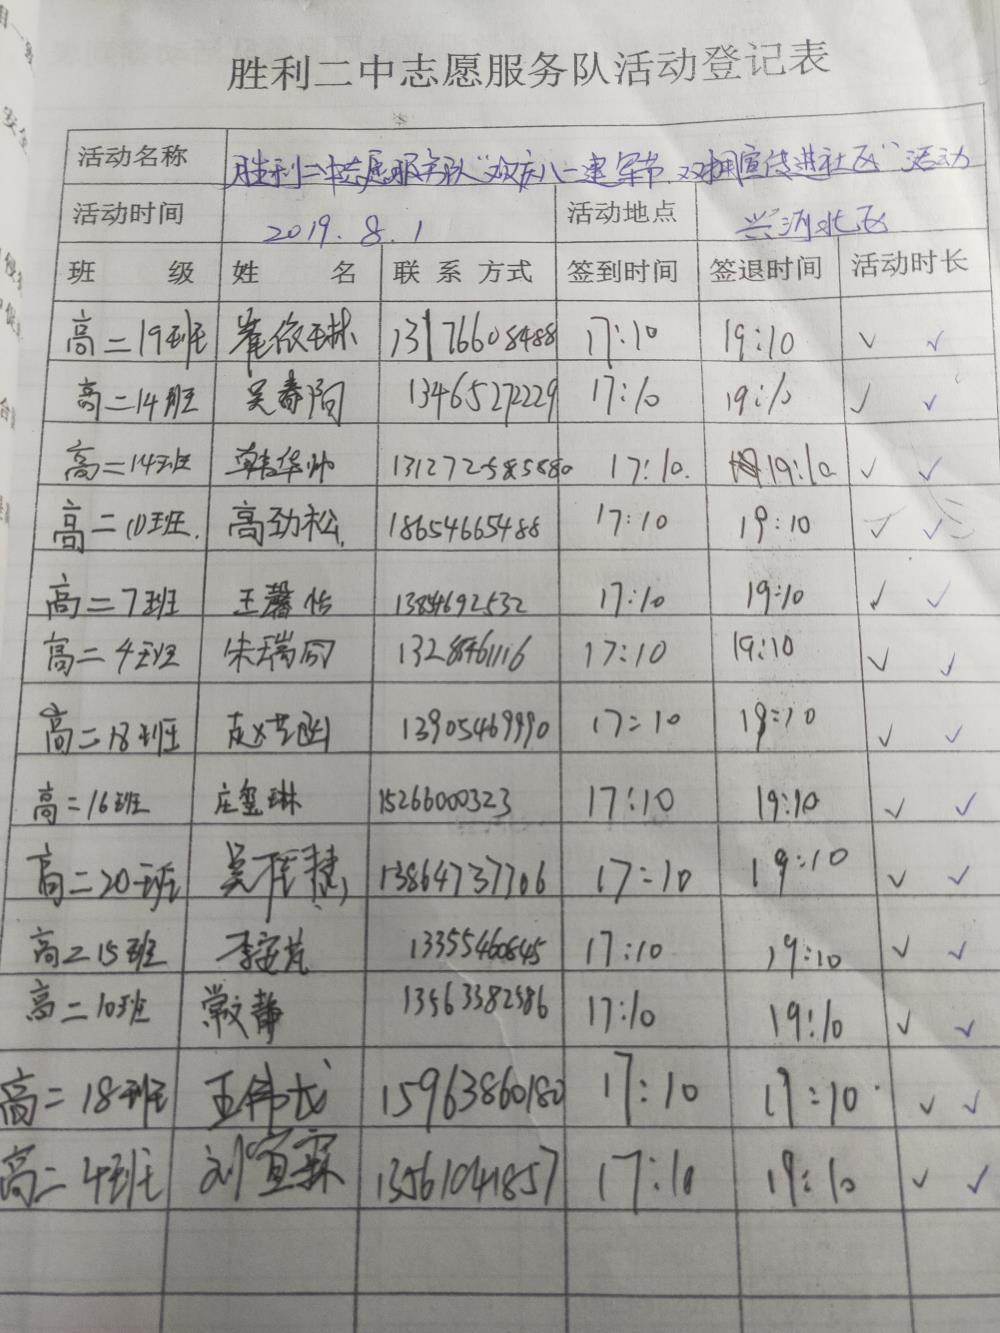 胜利二中志愿服务队活动登记表
活动名称 胜利二中志愿服务队“欢庆八一建军节、双拥宣传进社区”活动
活动时间 2019.8.1 活动地点 兴河北区
班 级 姓 名 联 系 方式 签到时间 签退时间 活动时长
高二19班 崔依琳 13176608488 17:10 19:10 ✓ ✓
高二14班 吴春阳 13465272229 17:10 19:10 ✓ ✓
高二14班 17:10. 19:10 ✓ ✓
高二10班. 高劲松. 18654665488 17:10 19:10 ✓ ✓
高二7班 王馨怡 1384692532 17:10 19:10 ✓ ✓
高二4班 朱瑞同 17:10 19:10 ✓ ✓
高二18班 17:10 19:10 ✓ ✓
高二16班 庄玺琳 15266000323 17:10 19:10 ✓ ✓
高二20班 13864737706 17:10 19:10 ✓ ✓
高二15班 李安芃 13355460845 17:10 19:10 ✓ ✓
高二10班 常文静 13563382586 17:10 19:10 ✓ ✓
高二18班 王伟龙 15963860180 17:10 19:10 ✓ ✓
高二4班 刘宜霖 13561041857 17:10 19:10 ✓ ✓